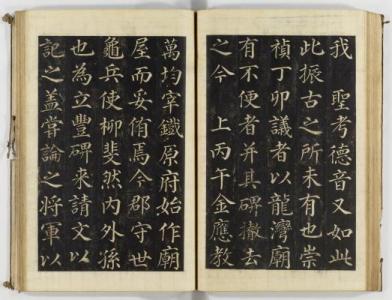 我　聖考德音又如此
此振古之所未有也崇
禎丁卯議者以龍灣廟
有不便者并其碑撤去
之今　上丙午金應教
萬均宰鐵原府始作廟
屋而妥侑焉今郡守世
龜兵使柳斐然内外孫
也為立豐碑来請文以
記之盖甞論之將軍以